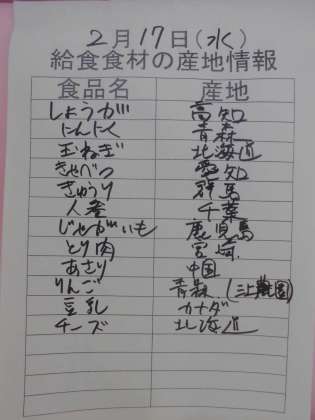 2月17日(水)
給食食材の産地情報
食品名 産地
しょうが 高知
にんにく 青森
玉ねぎ 北海道
きゃべつ 愛知
きゅうり 群馬
人参 千葉
じゃがいも 鹿児島
とり肉 宮崎
あさり 中国
りんご 青森
豆乳 カナダ
チーズ 北海道